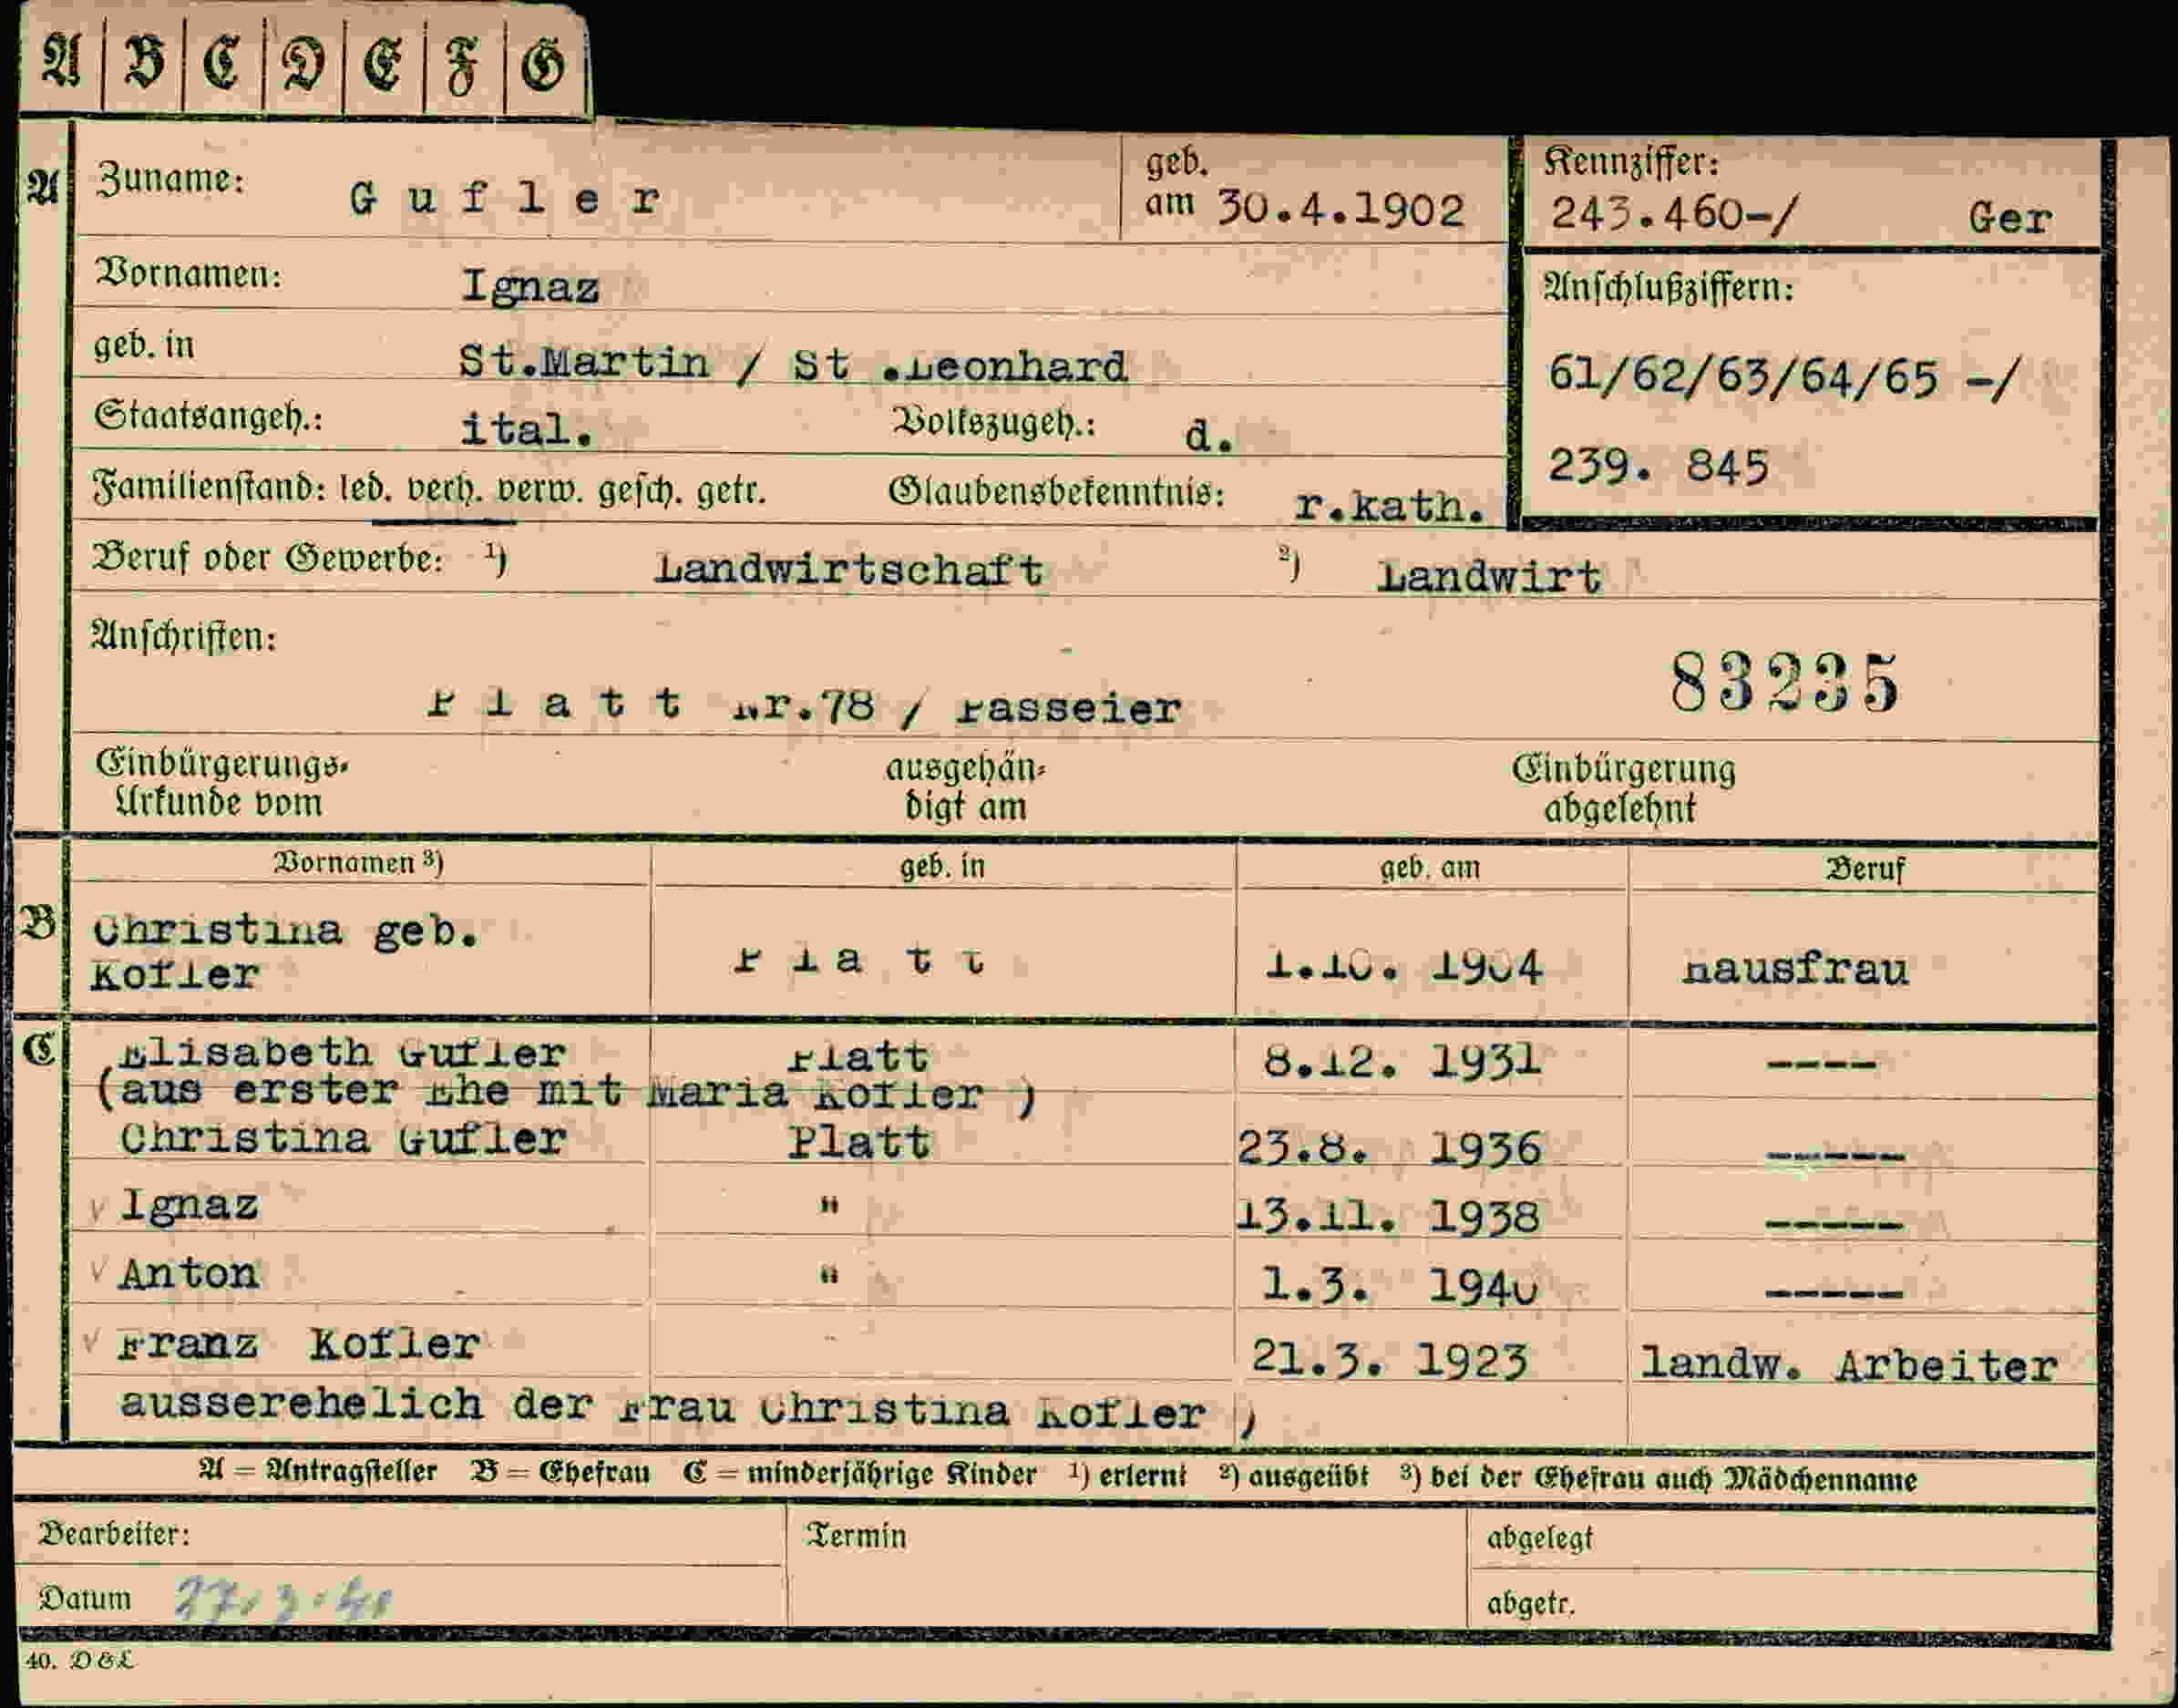 A B C D E F G
A Zuname: Gufler geb. am 30.4.1902
Kennziffer: 243.460-/ Ger
Vornamen: Ignaz
Anschlußziffern:
geb. in St.Martin / St .Leonhard
61/62/63/64/65 -/
Staatsangeh.: ital. Volkszugeh.: d.
239. 845
Familienstand: led. verh. verw. gesch. getr. Glaubensbekenntnis: r.kath.
Beruf oder Gewerbe: 1) Landwirtschaft 2) Landwirt
Anschriften:
Platt Nr.78 / Passeier
83235
Einbürgerungs-
Urkunde vom
ausgehän-
digt am
Einbürgerung
abgelehnt
Vornamen 3) geb. in geb. am Beruf
B Christina geb.
Kofler Platt 1.10. 1904 Hausfrau
C Elisabeth Gufler Platt 8.12. 1931 ----
(aus erster Ehe mit Maria Kofler )
Christina Gufler Platt 23.8. 1936 -----
v Ignaz " 13.11. 1938 -----
v Anton " 1.3. 1940 -----
v Franz Kofler 21.3. 1923 landw. Arbeiter
ausserehelich der Frau Christina Kofler )
A = Antragsteller B = Ehefrau C = minderjährige Kinder 1) erlernt 2) ausgeübt 3) bei der Ehefrau auch Mädchenname
Bearbeiter: Termin abgelegt
Datum abgetr.
40. D & L